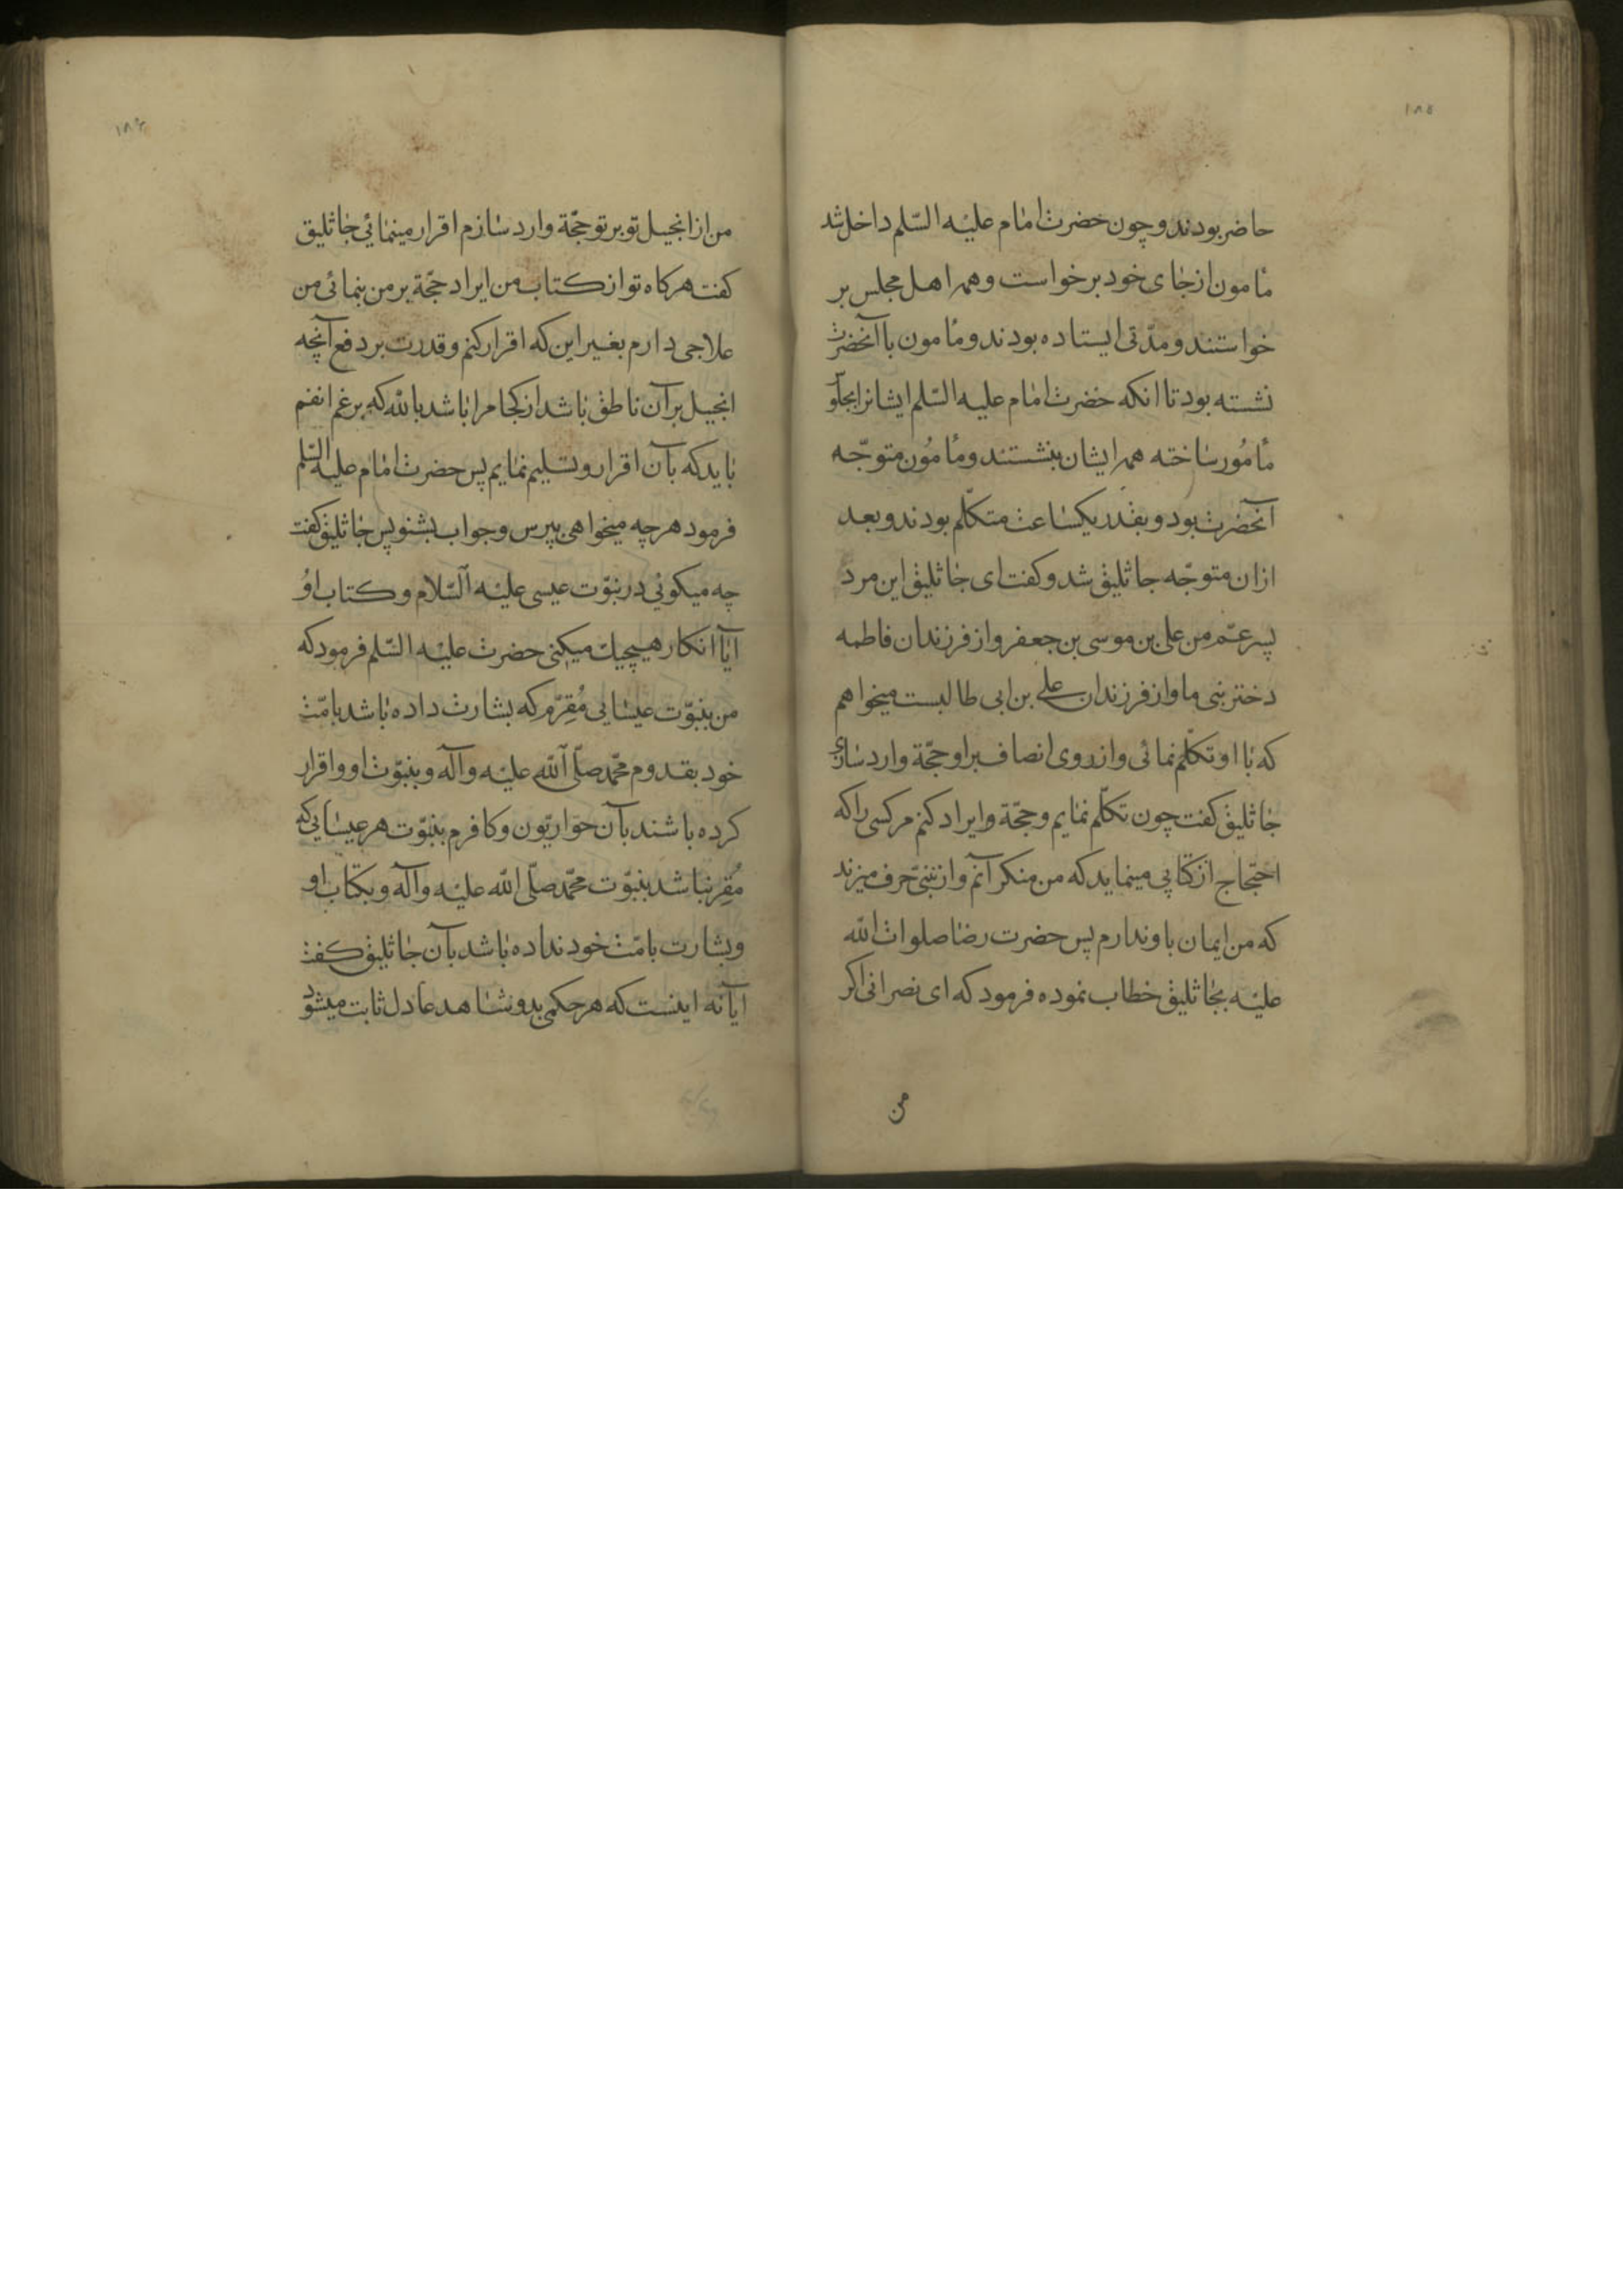 ۱۸۵
حاضر بودند و چون حضرت امام علیه السّلم داخل شد
مأمون از جای خود برخواست و همه اهل مجلس بر
خواستند و مدّتی ایستاده بودند و مأمون با آنحضرت
نشسته بود تا انکه حضرت امام علیه السّلم ایشانرا بجلو
مأمور ساخته همه ایشان بنشستند و مأمون متوجّه
آنحضرت بود و بقدر یکساعت متکلّم بودند و بعد
ازان متوجّه جاثلیق شد و کفت ای جاثلیق این مرد
پسر عمّ من علی بن موسی بن جعفر و از فرزندان فاطمه
دختر نبی ما و از فرزندان علی بن ابی طالبست میخواهم
که با او تکلّم نمائی و از روی انصاف بر او حجّة وارد سازی
جاثلیق کفت چون تکلّم نمایم و حجّة وایراد کنم مر کسی را که
احتجاج از کتابی مینماید که من منکر آنم و از نبیّ حرف میزند
که من ایمان باو ندارم پس حضرت رضا صلوات الله
علیه بجاثلیق خطاب نموده فرمود که ای نصرانی اکر
من
۱۸۶
من از انجیل تو بر تو حجّة وارد سازم اقرار مینمائی جاثلیق
کفت هرکاه تو از کتاب من ایراد حجّة بر من بنمائی من
علاجی دارم بغیر این که اقرار کنم و قدرت بر دفع آنچه
انجیل بر آن ناطق باشد از کجا مرا باشد بالله که برغم انفم
باید که بآن اقرار و تسلیم نمایم پس حضرت امام علیه السّلم
فرمود هرچه میخواهی بپرس و جواب بشنو پس جاثلیق کفت
چه میکوئی در نبوّت عیسی علیه السّلام و کتاب او
آیا انکار هیچیك میکنی حضرت علیه السّلم فرمود که
من بنبوّت عیسایی مُقِرّم که بشارت داده باشد بامّت
خود بقدوم محمّد صلّی الله علیه وآله و بنبوّت او و اقرار
کرده باشند بآن حواریّون و کافرم بنبوّت هر عیسایی که
مُقِر نباشد بنبوّت محمّد صلّی الله علیه وآله و بکتاب او
و بشارت بامّت خود نداده باشد بآن جاثلیق کفت
ایا نه اینست که هر حکمی بدو شاهد عادل ثابت میشود